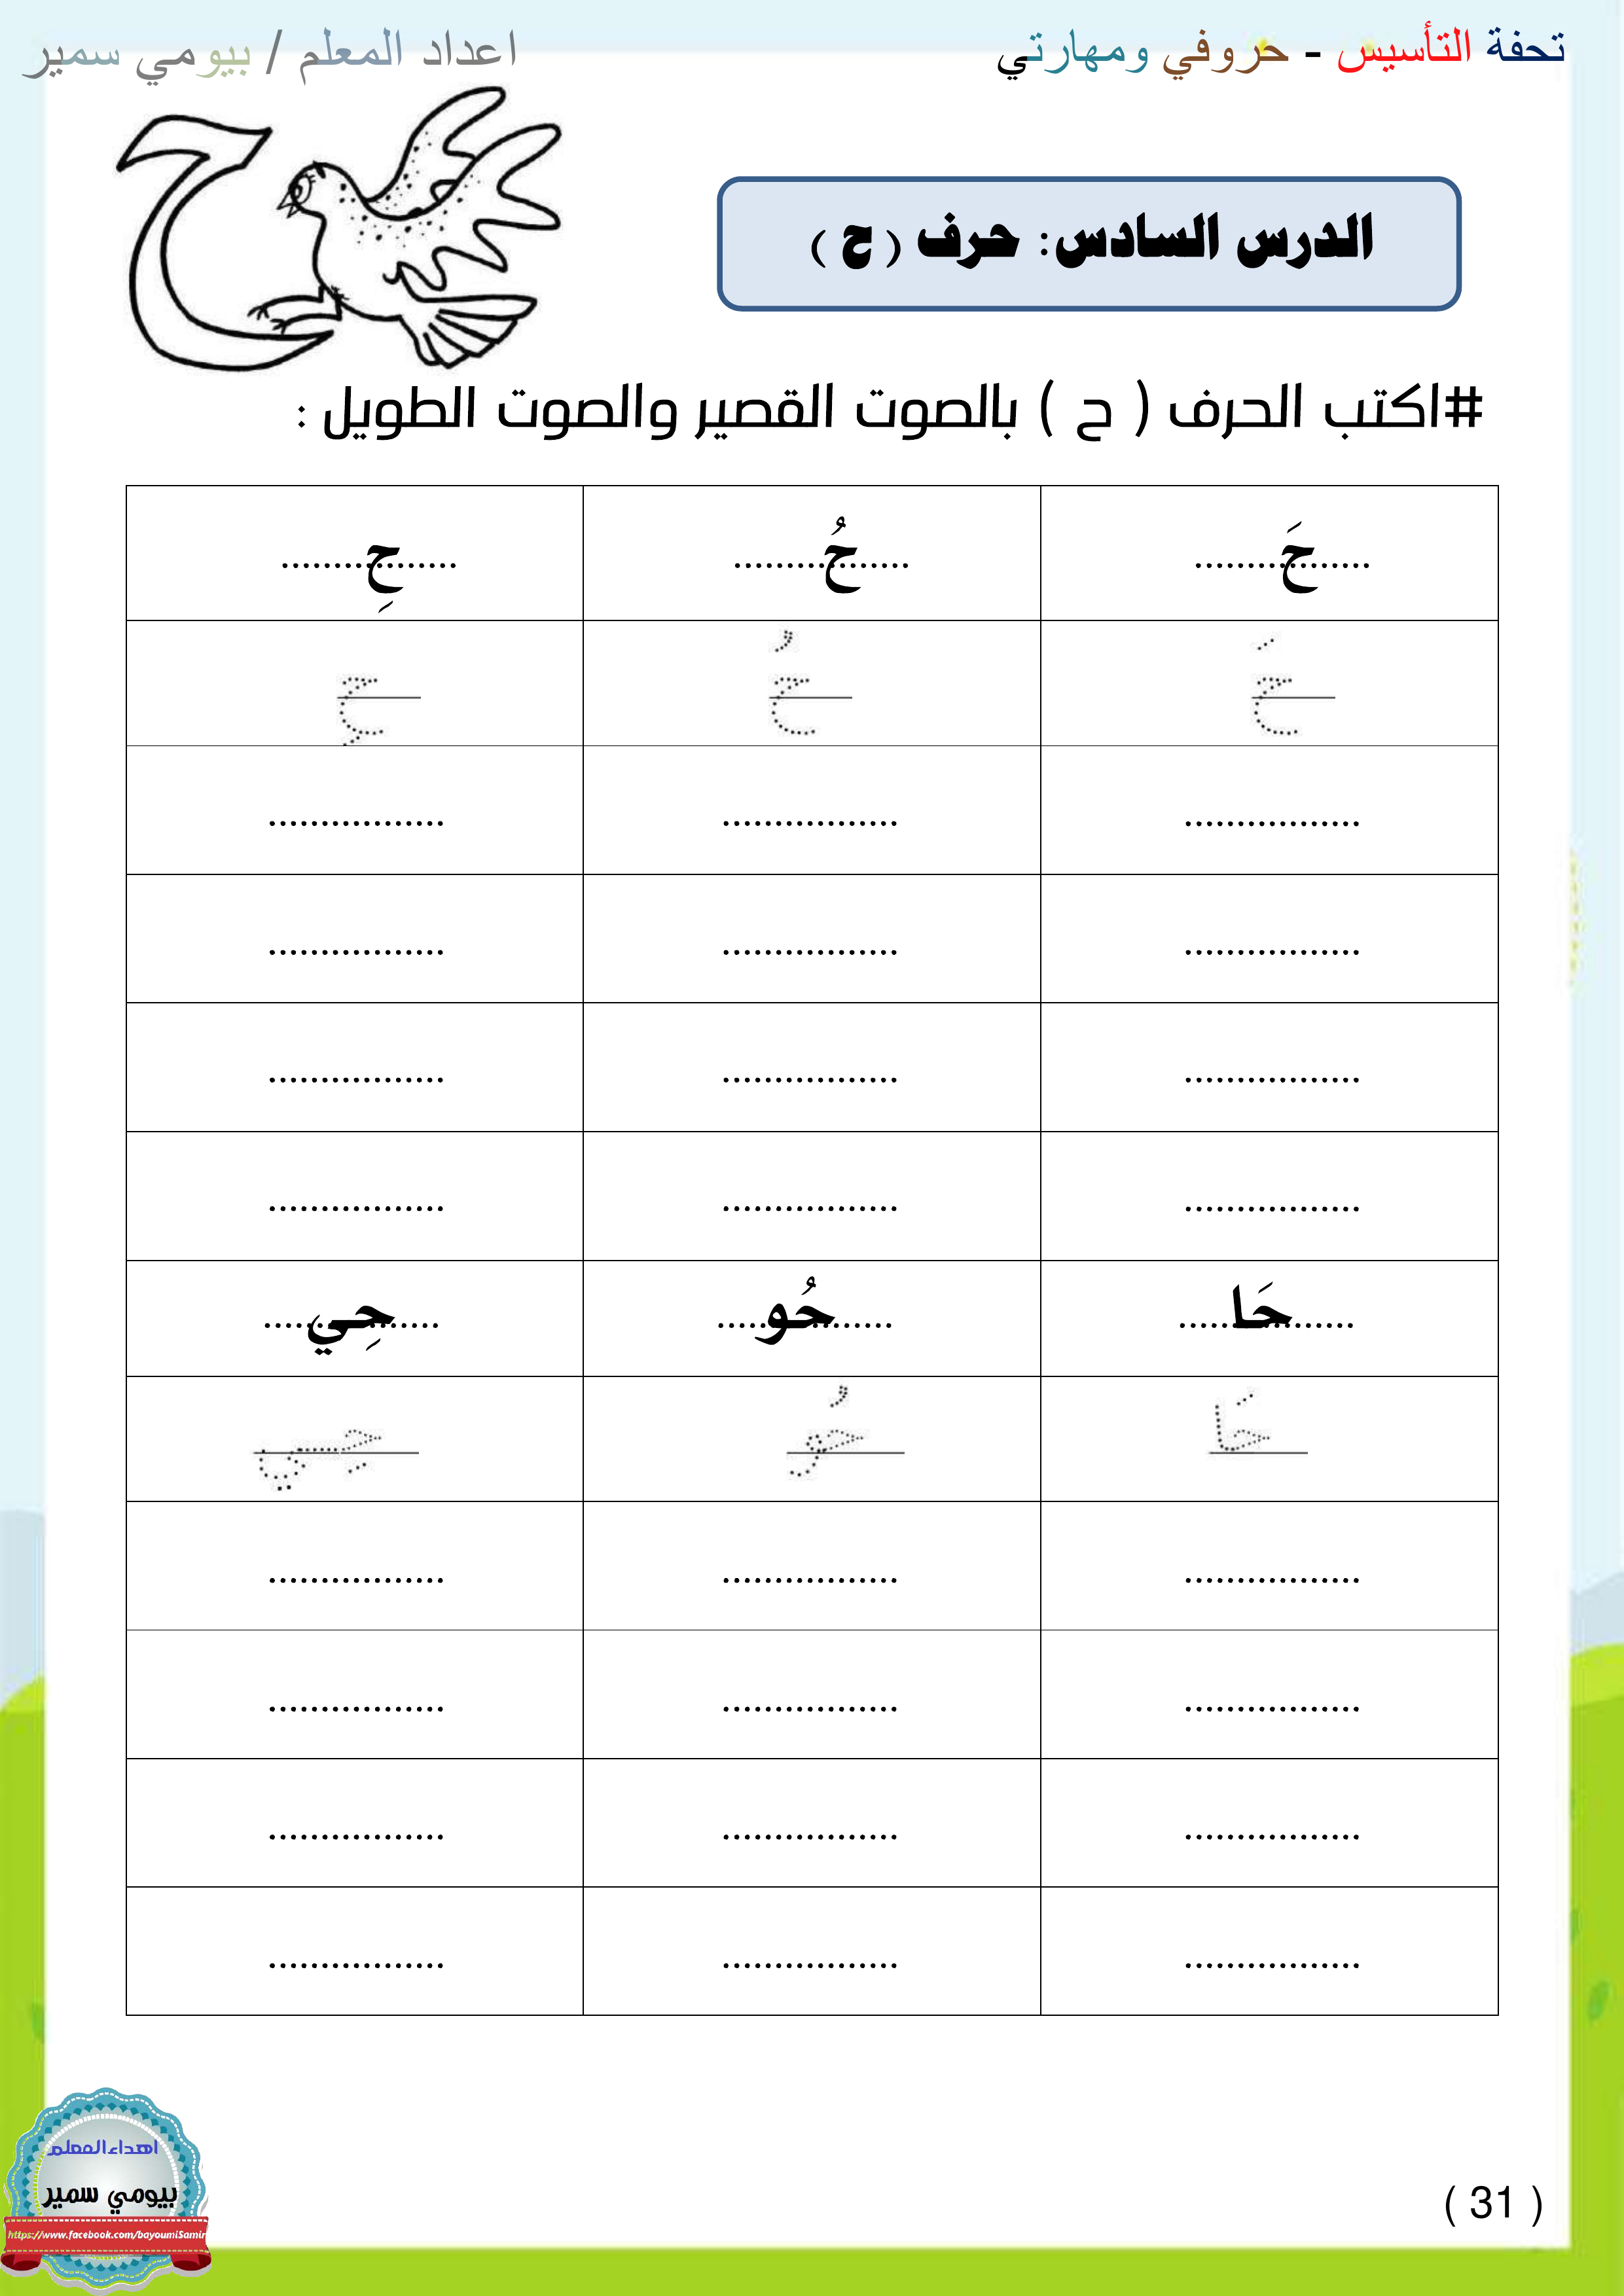 تحفة التأسيس - حروفي ومهارتي
اعداد المعلم / بيومي سمير
ح
الدرس السادس: حرف ( ح )
#اكتب الحرف ( ح ) بالصوت القصير والصوت الطويل :
حَ................. حُ................. حِ.................
حَ حُ حِ
................. ................. .................
................. ................. .................
................. ................. .................
................. ................. .................
حَا................. حُو................. حِي.................
حَا حُو حِي
................. ................. .................
................. ................. .................
................. ................. .................
................. ................. .................
اهداء المعلم
بيومي سمير
https://www.facebook.com/bayoumiSamir
( 31 )